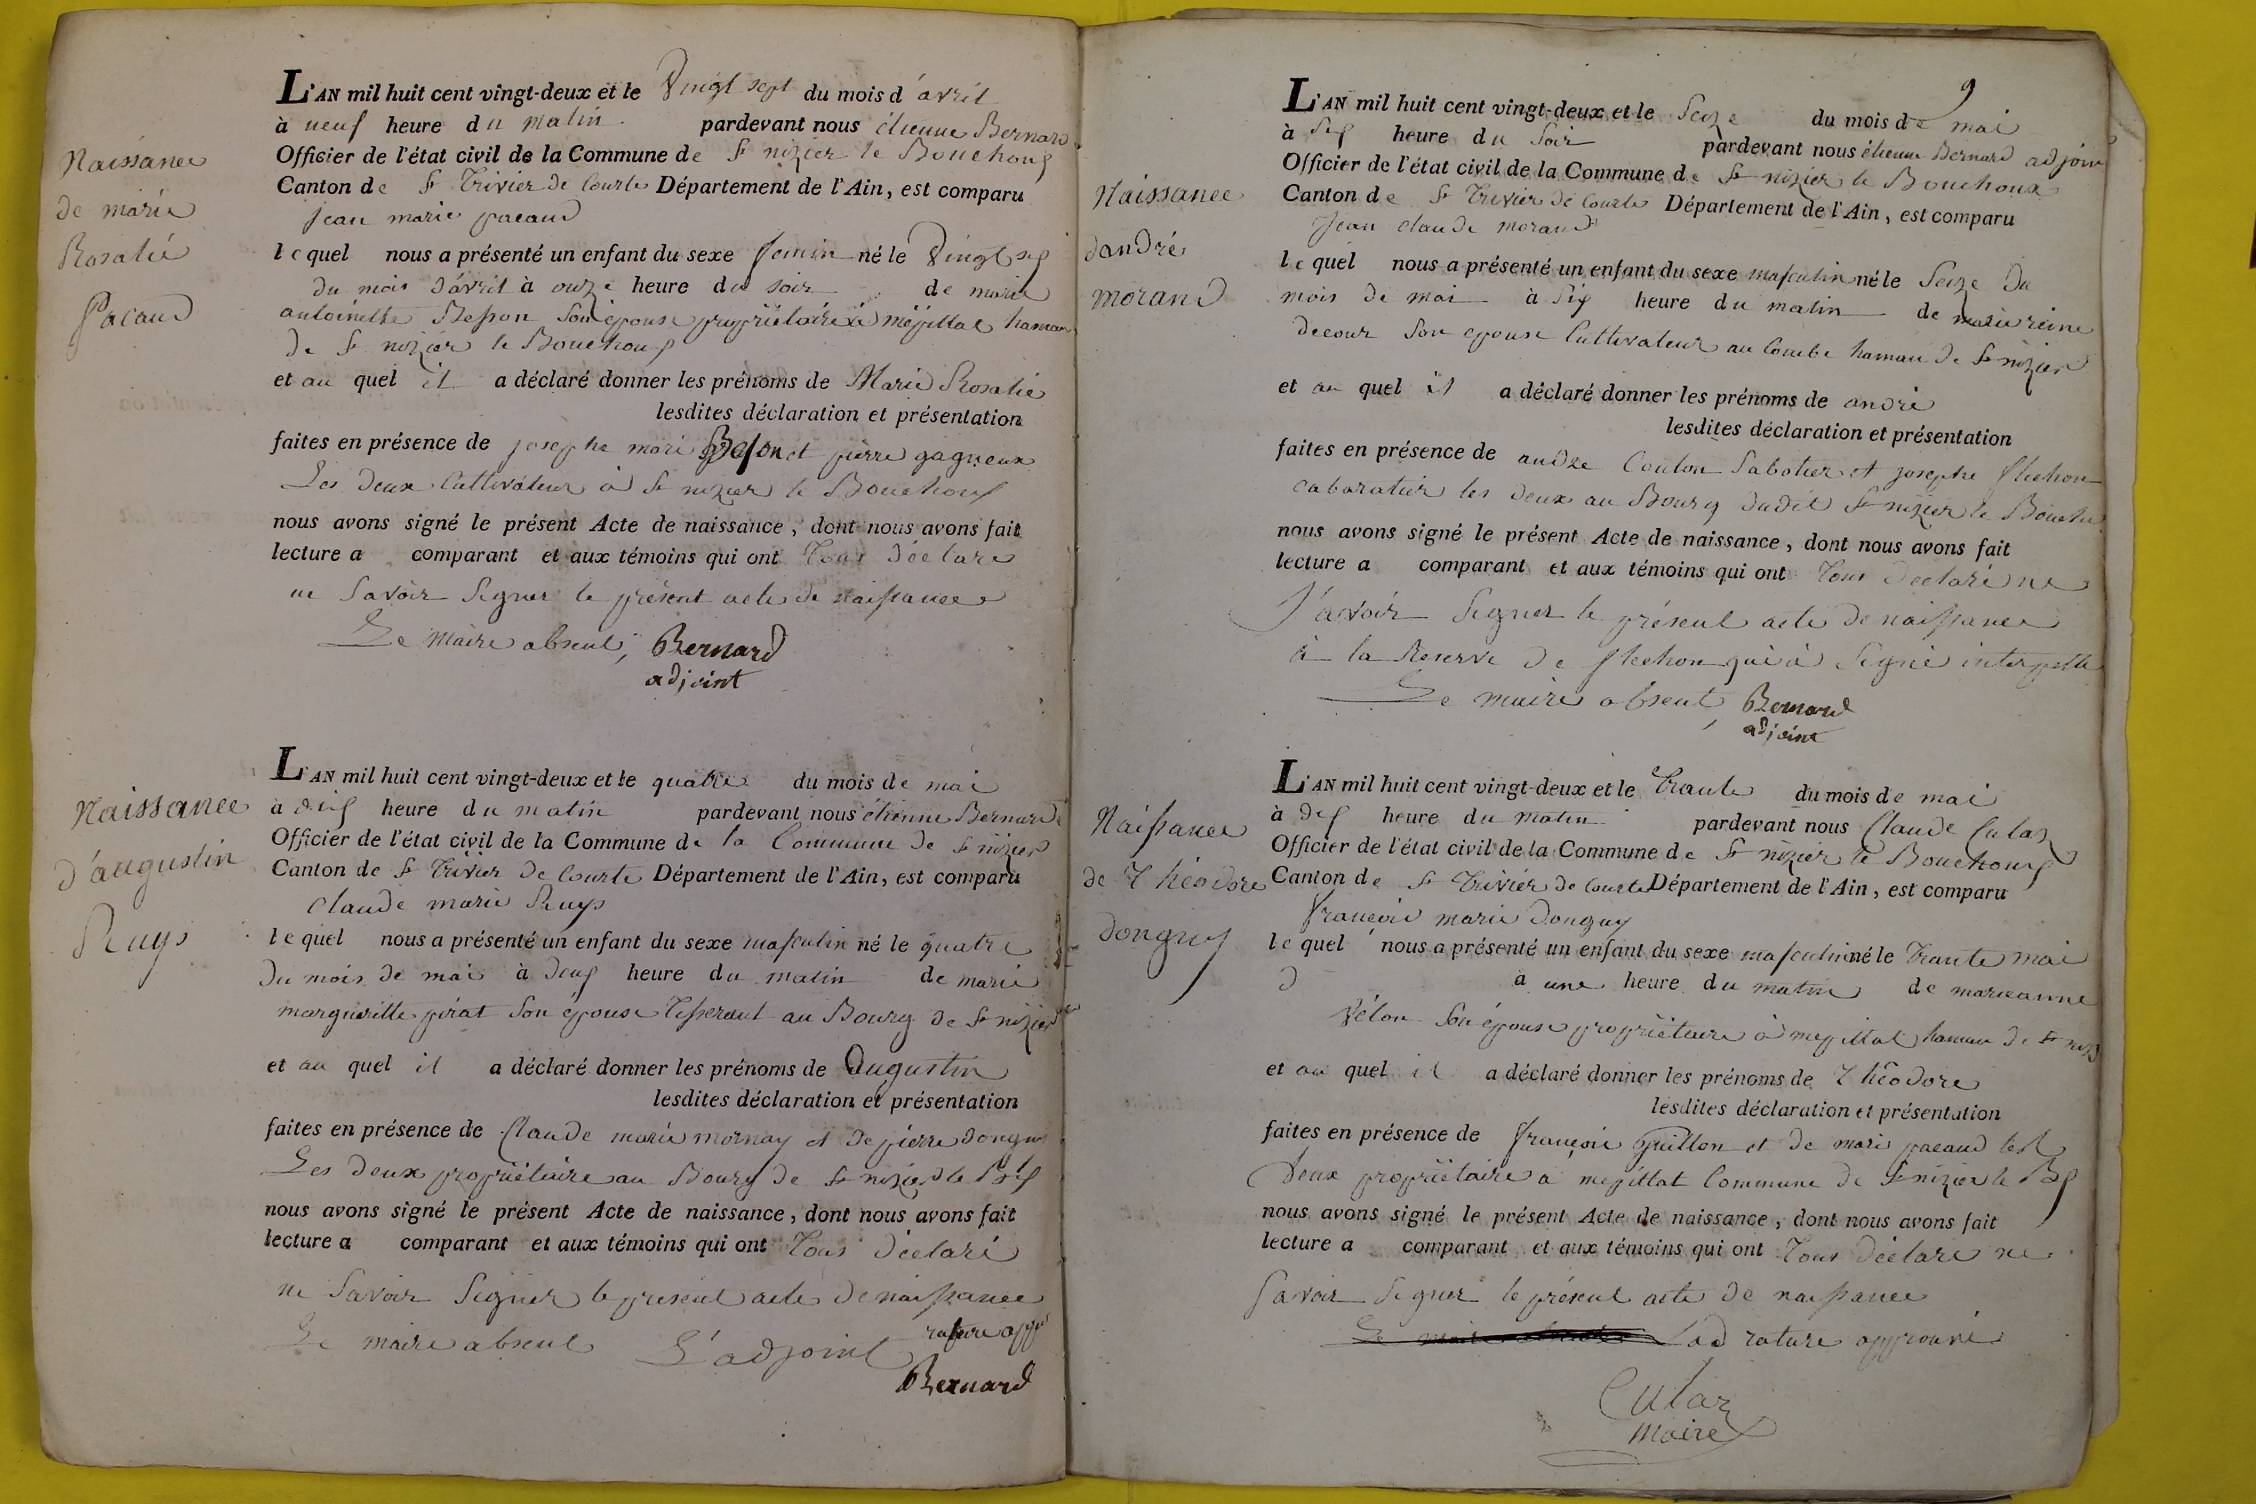 Naissance
de marie
Rosalie
Pacaud
L'AN mil huit cent vingt-deux et le Vingt sept du mois d'avril
à neuf heure du matin pardevant nous étienne Bernard
Officier de l'état civil de la Commune de St nizier le Bouchoux
Canton de St Trivier de Courte Département de l'Ain, est comparu
Jean marie pacaud
lequel nous a présenté un enfant du sexe feminin né le Vingt six
du mois d'avril à onze heure du soir de marie
antoinette son épouse propriétaire à mépillat hamau
de St nizier le Bouchoux
et au quel il a déclaré donner les prénoms de Marie Rosalie
lesdites déclaration et présentation
faites en présence de josephe marie et pierre gagneux
Les deux Cultivateur à St nizier le Bouchoux
nous avons signé le présent Acte de naissance, dont nous avons fait
lecture a comparant et aux témoins qui ont Tous déclare
ne Savoir Signer le présent acte de naissance
Le Maire absent, Bernard
adjoint
Naissance
d'augustin
Ruys
L'AN mil huit cent vingt-deux et le quatre du mois de mai
à dix heure du matin pardevant nous étienne Bernard
Officier de l'état civil de la Commune de la Commune de St nizier
Canton de St Trivier de Courte Département de l'Ain, est comparu
Claude marie Ruys
lequel nous a présenté un enfant du sexe masculin né le quatre
du mois de mai à deux heure du matin de marie
margueritte pirat Son épouse Tisserant au Bourg de St nizier
et au quel il a déclaré donner les prénoms de augustin
lesdites déclaration et présentation
faites en présence de Claude marie mornay et de pierre donguy
Les deux propriétaire au Bourg de St nizier le Bx
nous avons signé le présent Acte de naissance, dont nous avons fait
lecture a comparant et aux témoins qui ont Tous déclaré
ne Savoir Signer le présent acte de naissance
Le maire absent L'adjoint
Bernard
9
Naissance
d'andré
morand
L'AN mil huit cent vingt-deux et le Seize du mois de mai
à Six heure du Soir pardevant nous étienne Bernard adjoin
Officier de l'état civil de la Commune de St nizier le Bouchoux
Canton de St Trivier de Courte Département de l'Ain, est comparu
Jean claude morand
lequel nous a présenté un enfant du sexe masculin né le Seize du
mois de mai à Six heure du matin de marie reine
decour Son epouse Cultivateur au Combe hamau de St nizier
et au quel il a déclaré donner les prénoms de andré
lesdites déclaration et présentation
faites en présence de andre Coulon Sabotier et josephe flechon
cabaratier les deux au Bourg dudit St nizier le Bouchx
nous avons signé le présent Acte de naissance, dont nous avons fait
lecture a comparant et aux témoins qui ont Tous declaré ne
Savoir Signer le présent acte de naissance
à la Reserve de flechon qui à Signé interpellé
Le maire absent, Bernard
adjoint
Naissance
de Théodore
donguy
L'AN mil huit cent vingt-deux et le Trante du mois de mai
à dix heure du matin pardevant nous Claude Culaz
Officier de l'état civil de la Commune de St nizier le Bouchoux
Canton de St Trivier de Courte Département de l'Ain, est comparu
françois marie donguy
lequel nous a présenté un enfant du sexe masculin né le Trante mai
d à une heure du matin de marieanne
Vélon Son épouse propriétaire à mepillat hamau de St
et au quel il a déclaré donner les prénoms de Théodore
lesdites déclaration et présentation
faites en présence de françois Guillon et de marie pacaud les
deux propriétaire à mepillat Commune de St nizier le Bx
nous avons signé le présent Acte de naissance, dont nous avons fait
lecture a comparant et aux témoins qui ont Tous déclare ne
Savoir Signer le présent acte de naissance
Lad rature approuvé
Culaz
Maire